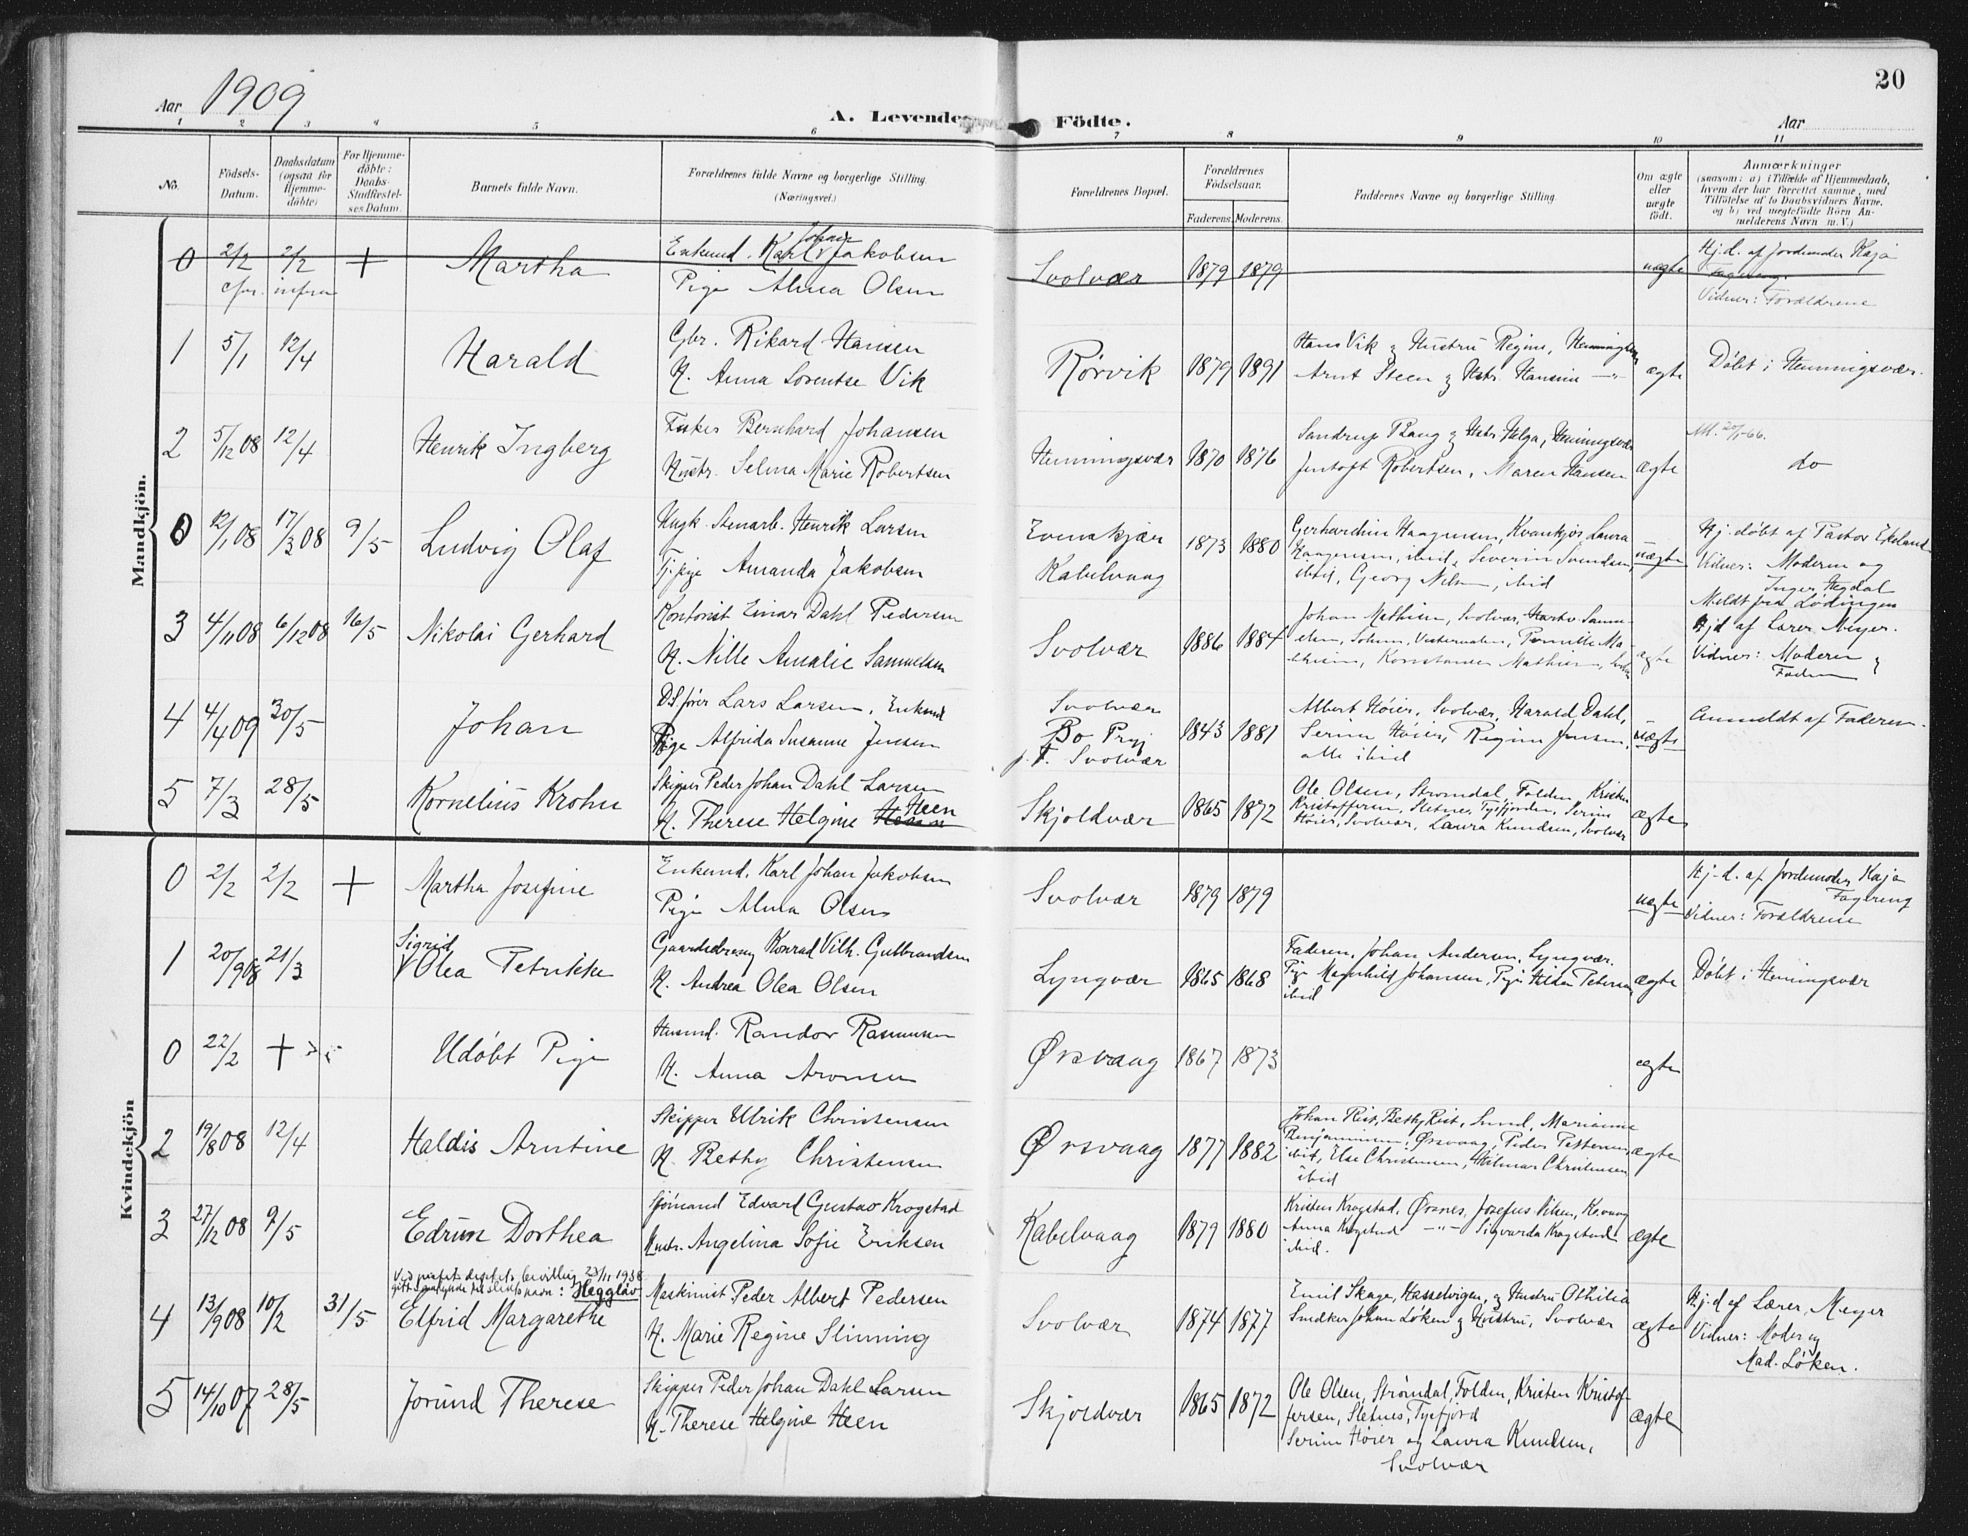 20
Aar 1909
A. Levende Födte.
Aar
1 2 3 4 5 6 7 8 9 10 11
No.
Födsels-Datum.
Daabsdatum (ogsaa for Hjemme-döbte)
For Hjemme-döbte: Daabs-Stadfæstel-ses Datum.
Barnets fulde Navn.
Forældrenes fulde Navne og borgerlige Stilling (Næringsvei.)
Forældrenes Bopæl.
Forældrenes Födselsaar.
Faderens. Moderens.
Faddernes Navne og borgerlige Stilling
Om ægte eller uægte födt.
Anmærkninger
(saasom: a) i Tilfælde af Hjemmedaab,
hvem der har forrettet samme, med
Tilföielse af to Daabsvidners Navne.
og b) ved uægtefödte Börn An-
melderens Navn m.V.)
Mandkjön.
0 2/2 2/2 + Martha Enkemd. Karl Johan Jakobsen Svolvær 1879 1879 uægte Hj.d. af Jordemoder Kaja
cfr. infra Pige Alma Olsen Fagereng.
Vidner: Forældrene
1 5/1 12/4 Harald Gbr. Rikard Hansen Rørvik 1879 1891 Hans Vik & Hustru Regine, Henningsvær ægte Døbt i Henningsvær.
H. Anna Sorentse Vik Arnt Steen & Hstr. Hansine
2 5/12 08 12/4 Henrik Ingberg Fisker Bernhard Johansen Henningsvær 1870 1876 Sandrup Bang & Hstr. Helga, Henningsvær ægte do
Hustr. Selma Marie Robertsen Jentoft Robertsen, Maren Hansen
0 12/1 08 17/3 08 9/5 Ludvig Olaf Ungk. Stenarb. Henrik Larsen Evenskjær 1873 1880 uægte Hj. døbt af Pastor Ekeland
Tj.pige Amanda Jakobsen Kabelvaag ibid, Georg Nilsen, ibid Vidner: Moderen og
Inger Hegdal
Meldt fra Lødingen
3 4/11 08 6/12 08 16/5 Nikolai Gerhard Kontorist Einar Dahl Pedersen Svolvær 1886 1884 ægte Hjd af Lærer Meyer.
H. Nille Amalie Samuelsen Vidner: Moderen &
Faderen
4 4/4 09 30/5 Johan D.S.fører Lars Larsen, Enkemd Svolvær 1843 1881 Albert Høier, Svolvær, Harald Dahl, uægte Anmeldt af Faderen.
Pige Alfrida Susanne Jensen Bo Pryj Serine Høier, Regine Jensen,
f. F. Svolvær alle ibid
5 7/3 28/5 Kornelius Krohn Skipper Peder Johan Dahl Larsen Skjoldvær 1865 1872 Ole Olsen, Strømdal, Folden, Kristen ægte
H. Therese Helgine Heen Kristoffersen, Sletnes, Tysfjorden, Serine
Høier, Svolvær, Laura Knudsen, Svolvær
Kvindekjön
0 2/2 2/2 + Martha Josefine Enkemd. Karl Johan Jakobsen Svolvær 1879 1879 uægte Hj.d. af Jordemoder Kaja
Pige Alma Olsen Fagereng
Vidner: Forældrene
1 20/9 08 21/3 Sigrid Olea Petrikke Gaardsbrug Konrad Vilh. Gulbrandsen Lyngvær 1865 1868 Faderen, Johan Andersen, Lyngvær. ægte Døbt i Henningsvær
H. Andrea Olea Olsen Pige Magnhild Johansen, Pige Hilda Petersen,
ibid
0 22/2 + Udøbt Pige Husmd. Randor Rasmussen Ørsvaag 1867 1873 ægte
H. Anna Aronsen
2 19/8 08 12/4 Haldis Arntine Skipper Ulrik Christensen Ørsvaag 1877 1882 Johan Rist, Bethy Rist, Sund, Marianne ægte
H. Bethy Christensen Benjaminsen, Ørsvaag, Peder Pettersen,
ibid, Else Christensen, Hilmar Christensen,
ibid
3 27/12 08 9/5 Edrun Dorthea Sjømand Edvard Gustav Krogstad Kabelvaag 1879 1880 Kristen Krogstad, Ørsnes, Josefus Nilsen, Kb.vaag ægte
Hustr. Angelina Sofie Eriksen Anna Krogstad — " — Sigvarda Krogstad
ibid.
bevilling 23/11 1938
slektsnavn: Heggløv
4 13/9 08 10/2 31/5 Elfrid Margarethe Maskinist Peder Albert Pedersen Svolvær 1874 1877 Emil Skage, Hasselvigen, og Hustru Othilia ægte Hj.d af Lærer, Meyer
H. Marie Regine Slinning Snedker Johan Løken & Hustru, Svolvær Vidner: Moder og
Mad. Løken.
5 14/10 07 28/5 Jorund Therese Skipper Peder Johan Dahl Larsen Skjoldvær 1865 1872 Ole Olsen, Strømdal, Folden, Kristen Kristof- ægte
H. Therese Helgine Heen fersen, Sletnes, Tysfjord
Serine Høier og Laura Knudsen,
Svolvær